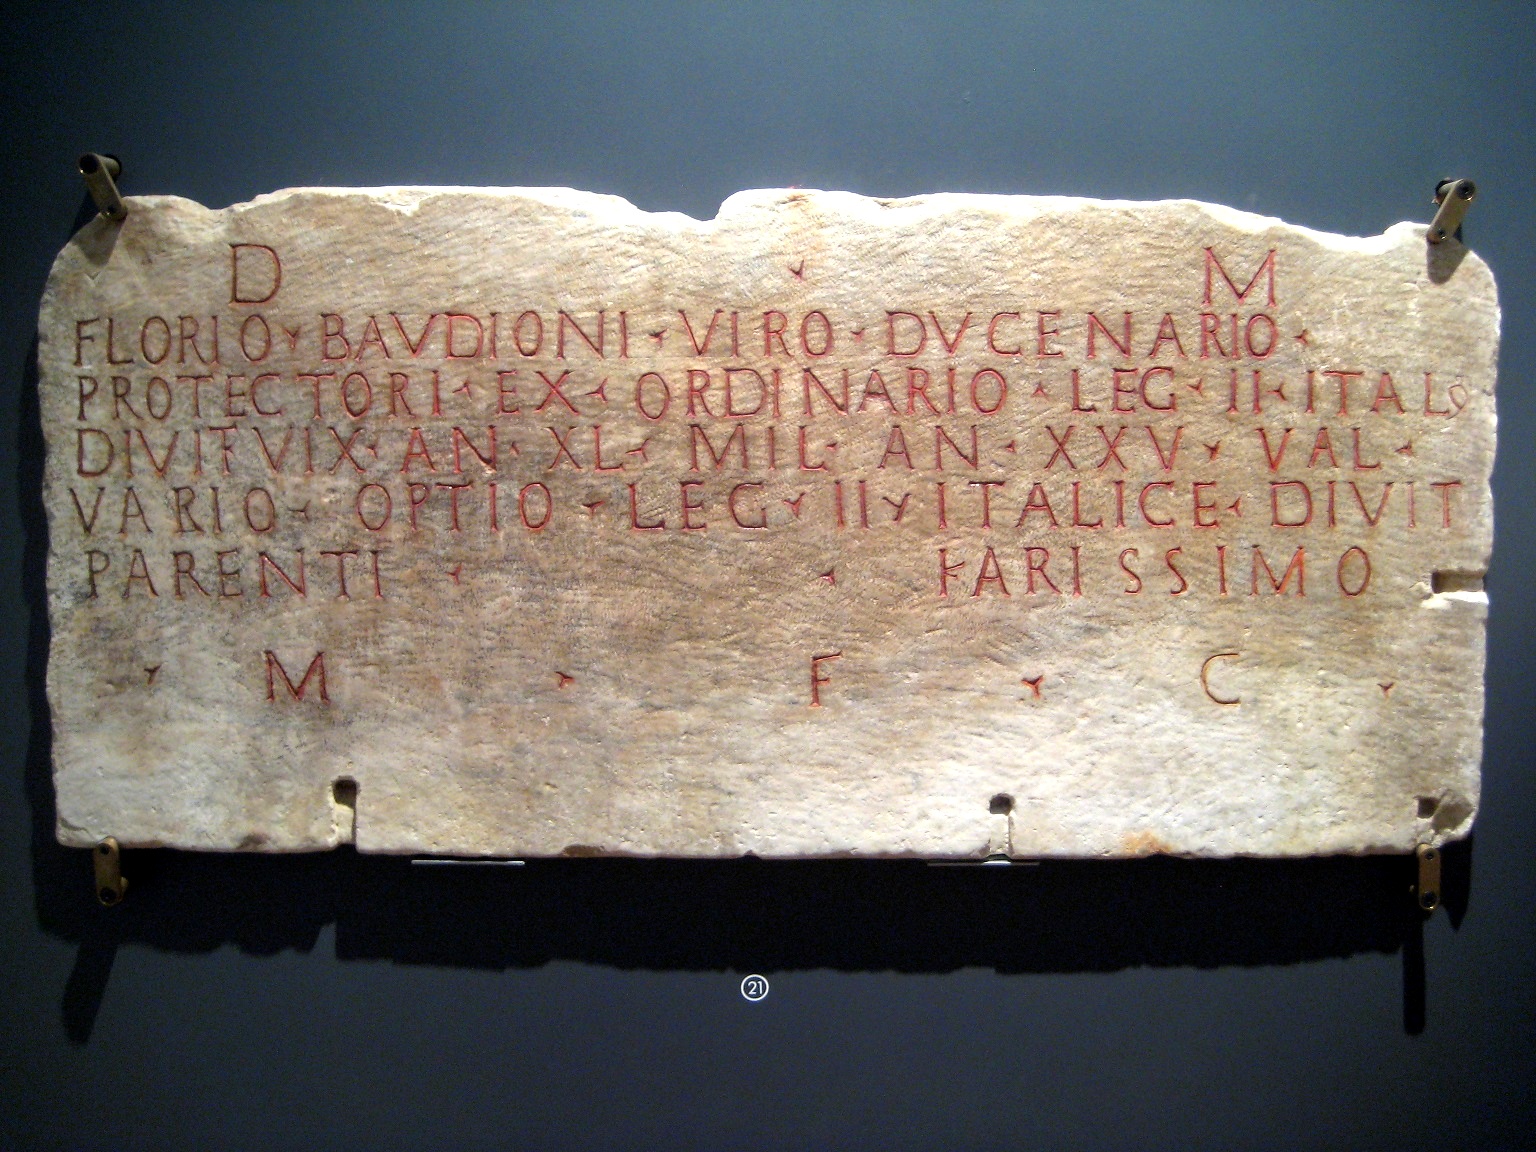 D · M
FLORIO · BAVDIONI · VIRO · DVCENARIO ·
PROTECTORI · EX · ORDINARIO · LEG · II · ITALO
DIVITFVIX · AN · XL · MIL · AN · XXV · VAL ·
VARIO · OPTIO · LEG · II · ITALICE · DIVIT
PARENTI · · KARISSIMO
· M · F · C ·
21